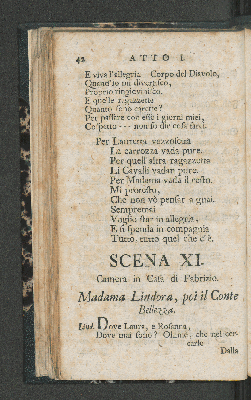 42 ATTO I.
E viva l'allegria Corpo del Diavolo,
Quand'io mi divertisco,
Proprio ringiovinisco.
E quelle ragazzette
Quanto sono carette?
Per passare con esse i giorni miei,
Cospetto --- non so dir cosa farei.
Per Lauretta vezzosetta
La carrozza vada pure.
Per quell'altra ragazzetta
Li Cavalli vadan pure.
Per Madama vada il resto.
Mi protesto,
Che non vò pensar a guai.
Sempremai
Voglio star in allegria,
E si spenda in compagnia
Tutto, tutto quel che c'è.
SCENA XI.
Camera in Casa di Fabrizio.
Madama Lindora, poi il Conte
Bellezza.
Lind. Dove Laura, e Rosanna,
Dove mai sono? Oimè, che nel cer-
carle
Dalla